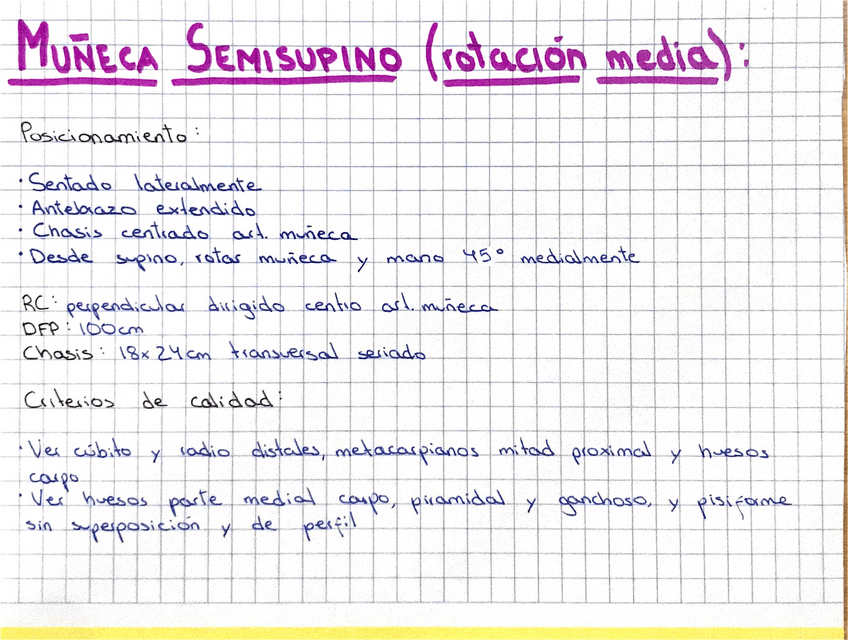 MUÑECA SEMISUPINO (rotación media):
Posicionamiento:
· Sentado lateralmente
· Antebrazo extendido
· Chasis centrado art. muñeca
· Desde supino, rotar muñeca y mano 45° medialmente
RC: perpendicular dirigido centro art. muñeca
DFP: 100cm
Chasis: 18x24cm transversal seriado
Criterios de calidad:
· Ver cúbito y radio distales, metacarpianos mitad proximal y huesos
carpo
· Ver huesos parte medial carpo, piramidal y ganchoso, y pisiforme
sin superposición y de perfil